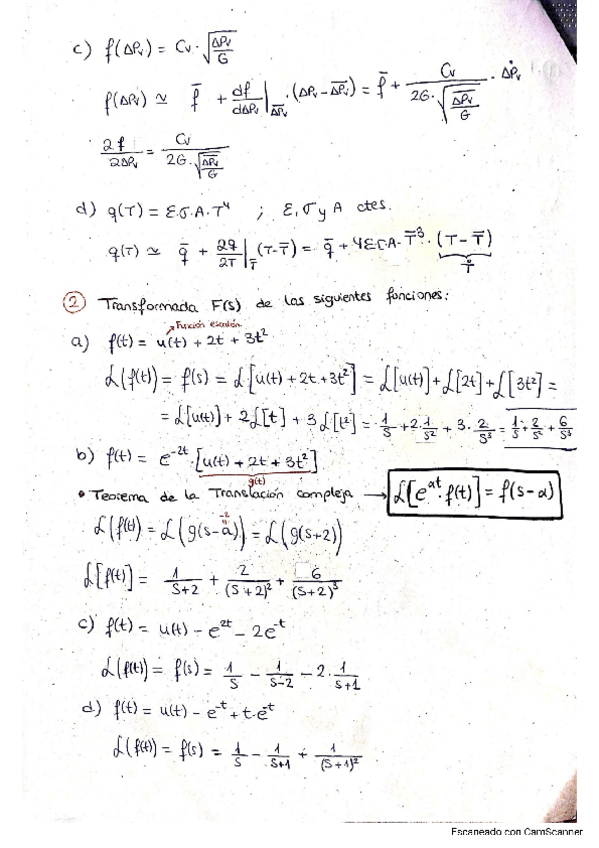 c) f(ΔPv) = Cv·√(ΔPv/G)
f(ΔPv) ≃ f̄ + df/dΔPv|ΔP̄v ·(ΔPv - ΔP̄v) = f̄ + Cv/(2G·√(ΔP̄v/G)) · ΔP̊v
2f/2ΔPv = Cv/(2G·√(ΔP̄v/G))
d) q(T) = Ɛ·σ·A·T⁴ ; Ɛ, σ y A ctes.
q(T) ≃ q̄ + 2q/2T|T̄ (T-T̄) = q̄ + 4Ɛσ·A·T̄³·(T-T̄)
T̊
② Transformada F(s) de las siguientes funciones:
Función escalón
a) f(t) = u(t) + 2t + 3t²
ℒ(f(t)) = f(s) = ℒ[u(t) + 2t + 3t²] = ℒ[u(t)] + ℒ[2t] + ℒ[3t²] =
= ℒ[u(t)] + 2ℒ[t] + 3ℒ[t²] = 1/s + 2·1/s² + 3·2/s³ = 1/s + 2/s² + 6/s³
b) f(t) = e^-2t·[u(t) + 2t + 3t²]
g(t)
• Teorema de la Translación compleja → ℒ[e^at·f(t)] = f(s-a)
-2
ℒ(f(t)) = ℒ(g(s-a)) = ℒ(g(s+2))
ℒ[f(t)] = 1/(s+2) + 2/(s+2)² + 6/(s+2)³
c) f(t) = u(t) - e^2t - 2e^-t
ℒ(f(t)) = f(s) = 1/s - 1/(s-2) - 2·1/(s+1)
d) f(t) = u(t) - e^-t + t·e^-t
ℒ(f(t)) = f(s) = 1/s - 1/(s+1) + 1/(s+1)²
Escaneado con CamScanner